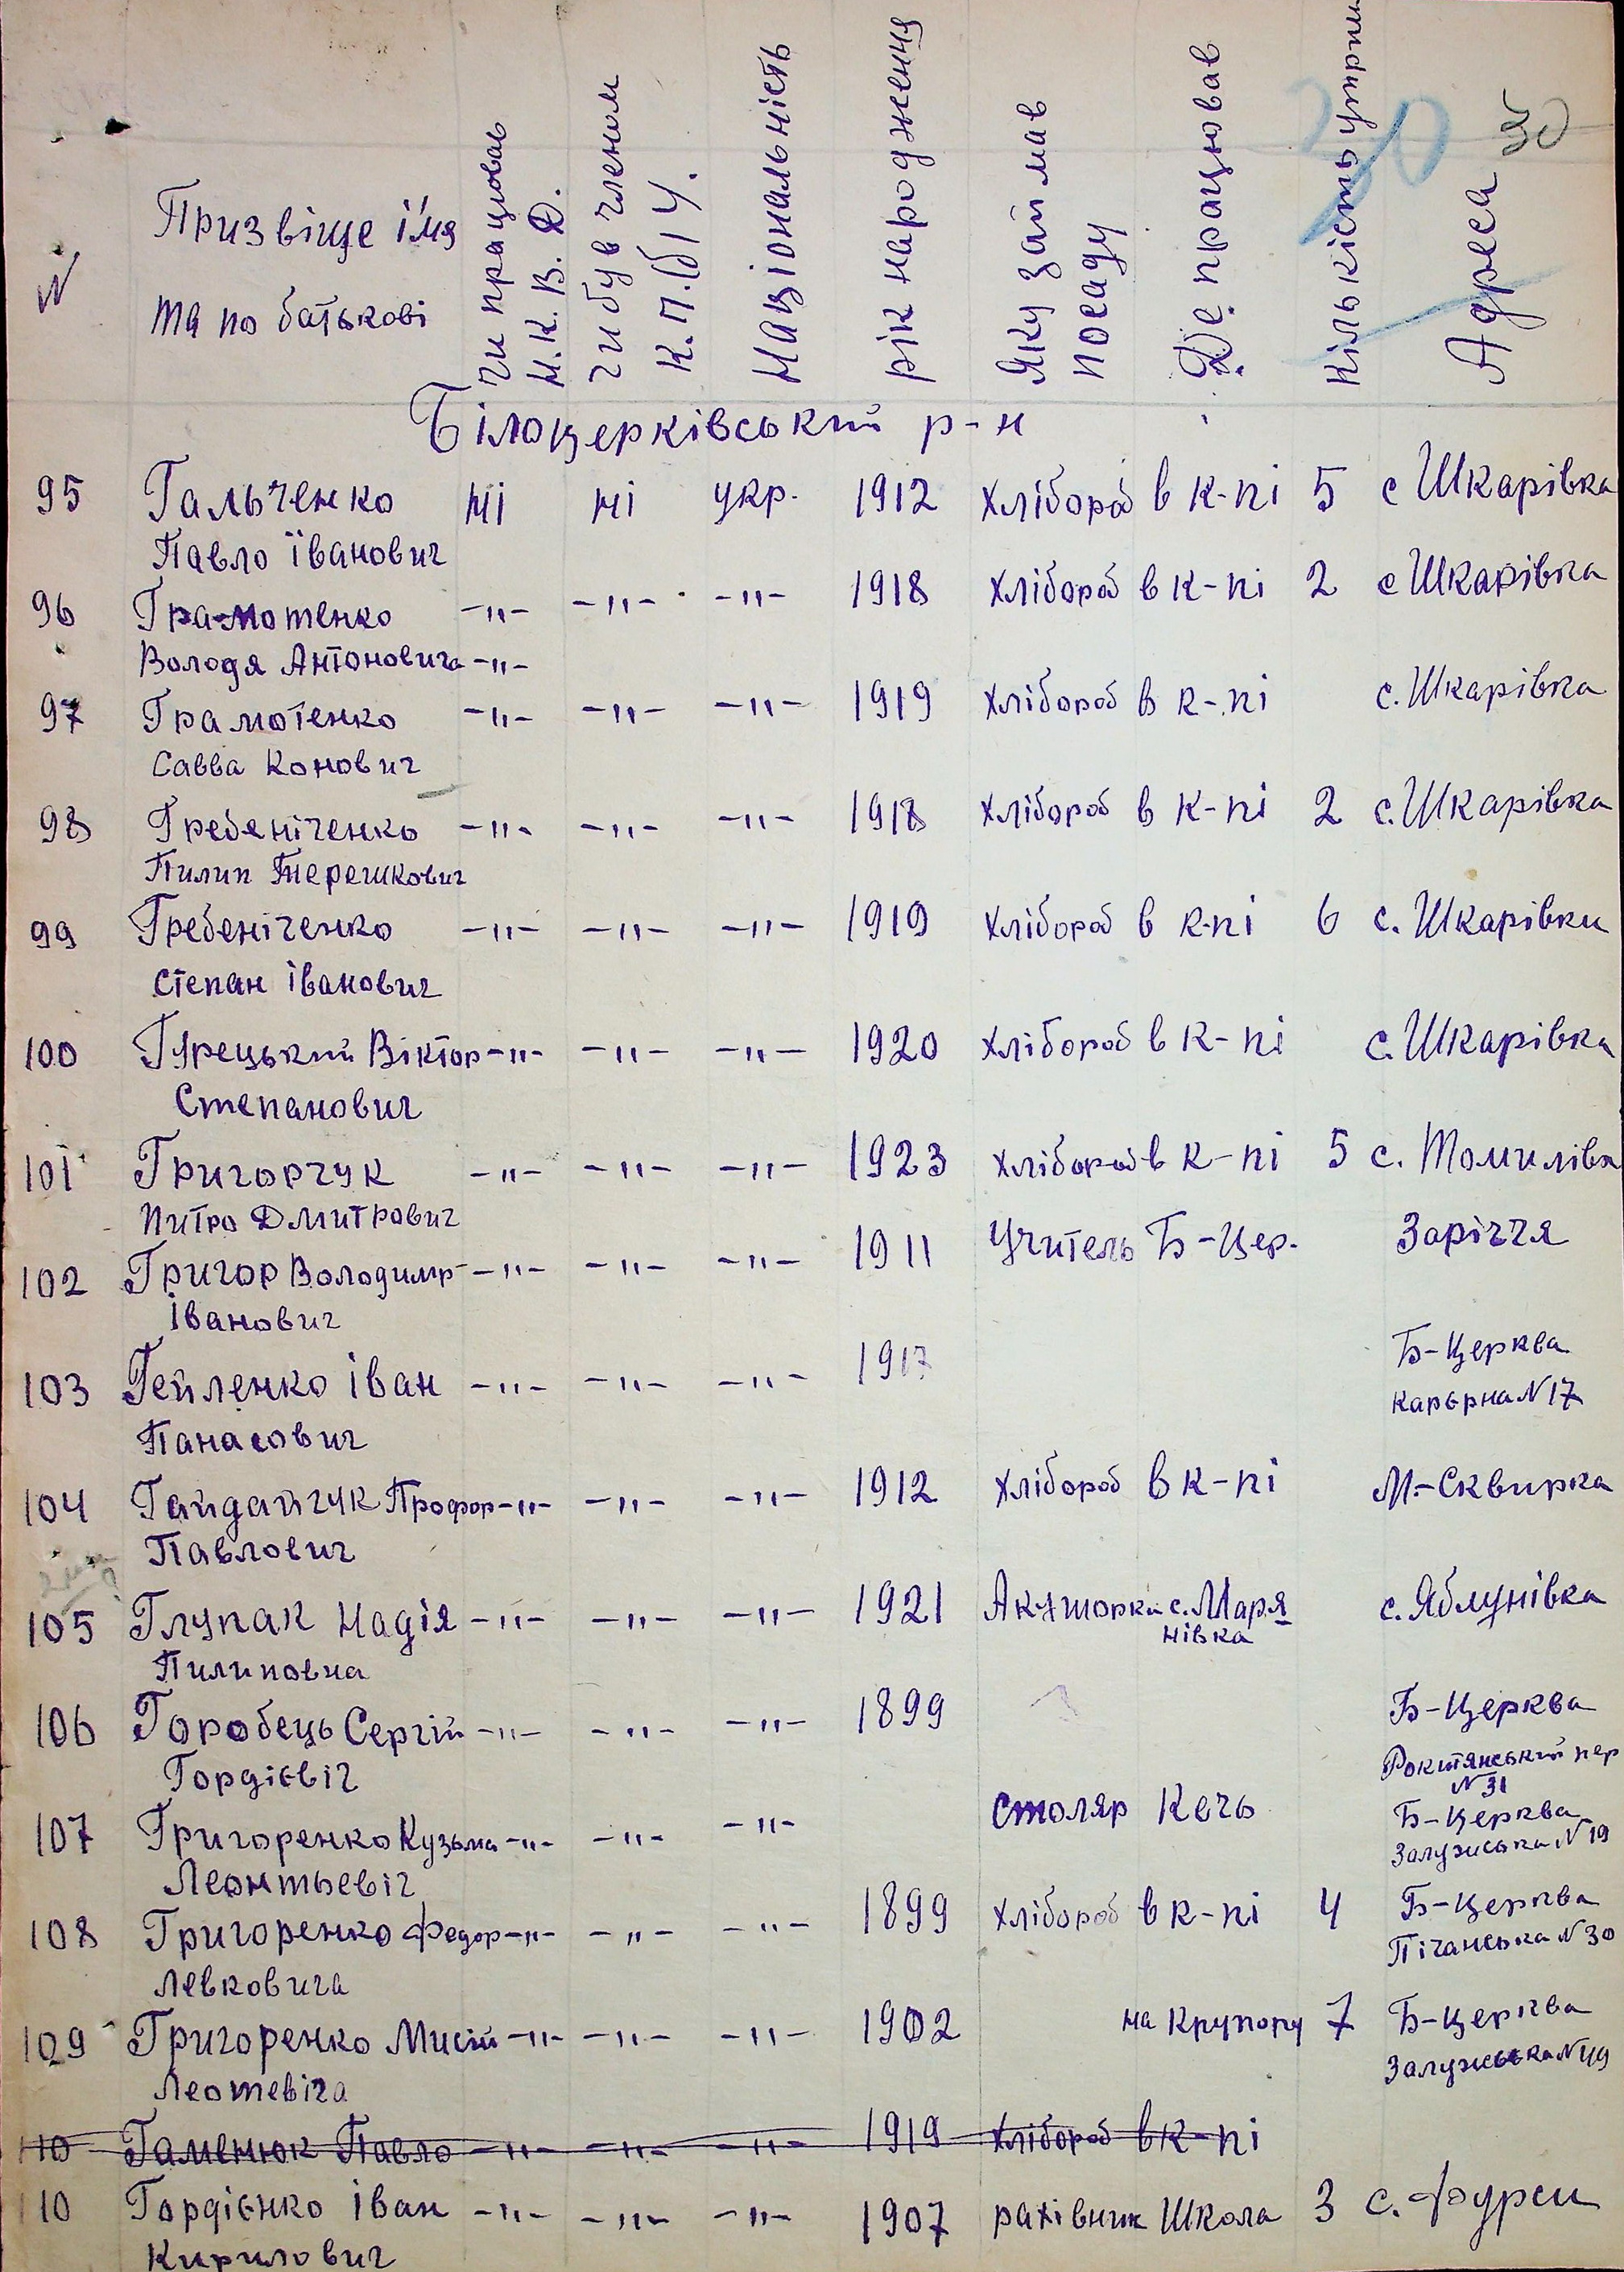 30
30
N
Призвіще ім'я
та по батькові
чи працював
Н.К.В.Д.
чи був членом
К.П.(б)У.
Національність
рік народження
Яку займав
посаду
Де працював
Кількість утрим
Адреса
Білоцерківський р-н
95 Гальченко ні ні укр. 1912 хлібороб в к-пі 5 с Шкарівка
Павло Іванович
96 Грамотенко -"- -"- -"- 1918 хлібороб в к-пі 2 с Шкарівка
Володя Антоновича -"-
97 Грамотенко -"- -"- -"- 1919 хлібороб в к-пі с. Шкарівка
Савва Конович
98 Гребеніченко -"- -"- -"- 1918 хлібороб в к-пі 2 с. Шкарівка
Пилип Терешкович
99 Гребеніченко -"- -"- -"- 1919 хлібороб в к-пі 6 с. Шкарівки
Степан Іванович
100 Грецький Віктор -"- -"- -"- 1920 хлібороб в к-пі с. Шкарівка
Степанович
101 Григорчук -"- -"- -"- 1923 хлібороб в к-пі 5 с. Томилівк
Питро Дмитрович
102 Григор Володимр -"- -"- -"- 1911 Учитель Б-Цер. Заріччя
Іванович
103 Гейленко Іван -"- -"- -"- 1917 Б-Церква
Панасович Карьрна N 17
104 Гайдайчук Профор -"- -"- -"- 1912 хлібороб в к-пі М.-Сквирка
Павлович
105 Глупак Надія -"- -"- -"- 1921 Акушорка с. Маря
нівка с. Яблунівка
Пилиповна
106 Горобець Сергій -"- -"- -"- 1899 Б-Церква
Гордієвіч Рокитянський пер
N 31
107 Григоренко Кузьма -"- -"- -"- Столяр Кечь Б-Церква
Леонтьевіч Залузиська N 19
108 Григоренко Федор -"- -"- -"- 1899 хлібороб в к-пі 4 Б-Церква
Левковича Пічанська N 30
109 Григоренко Мисій -"- -"- -"- 1902 на Крупору 7 Б-Церква
Леотевіча Залузиська N 49
110 Гаменюк Павло -"- -"- -"- 1919 хлібороб в к-пі
110 Гордієнко Іван -"- -"- -"- 1907 рахівник Школа 3 с. Фурси
Кирилович